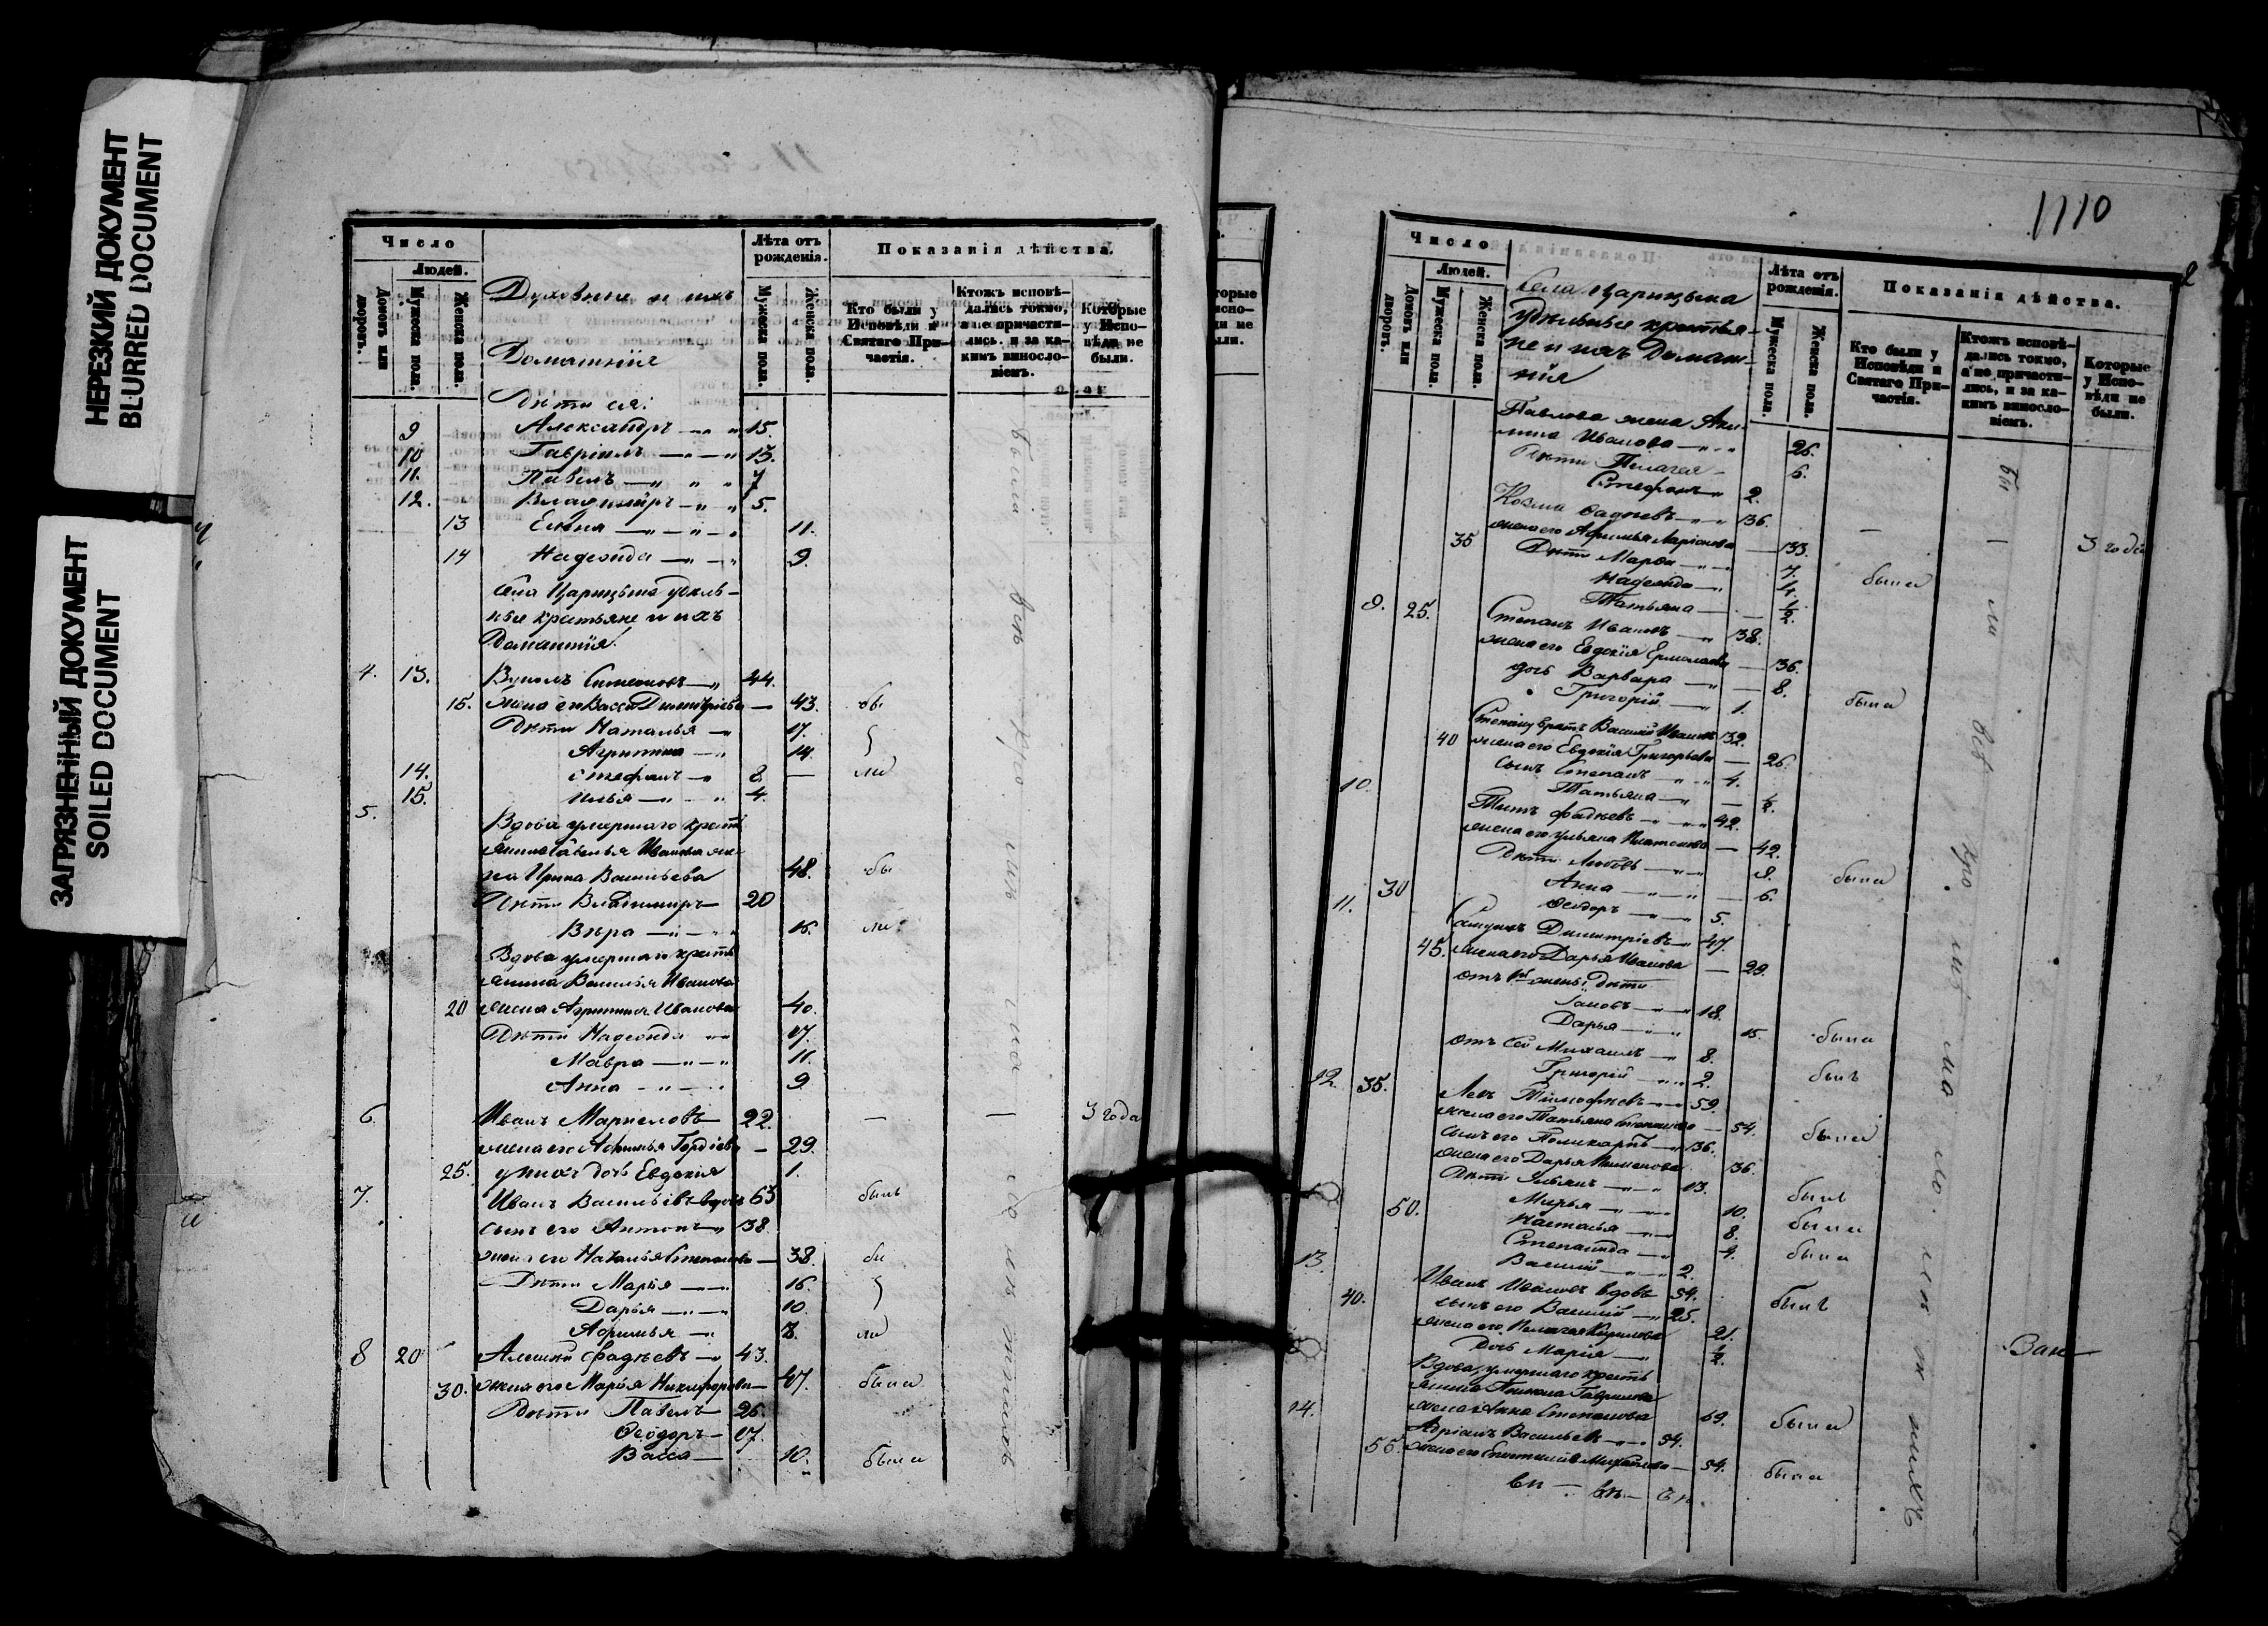 НЕРЕЗКИЙ ДОКУМЕНТ
BLURRED DOCUMENT
ЗАГРЯЗНЕННЫЙ ДОКУМЕНТ
SOILED DOCUMENT
Число
Людей.
Домовъ или дворовъ.
Мужеска пола.
Женска пола.
Духовные и ихъ
Домашнія
Лѣта отъ рожденія.
Мужеска пола.
Женска пола.
Показанія дѣйства.
Кто были у Исповѣди и Святаго Причастія.
Ктожъ исповѣдались токмо, а не причастились, и за какимъ винословіемъ.
Которые у Исповѣди не были.
Дѣти ея:
9 Александръ 15.
10 Гавріилъ 13.
11. Павелъ 7
12. Владиміръ 5.
13 Елена 11.
14 Надежда 9.
Села Царицына удѣль-
ные крестьяне и ихъ
Домашнія
4. 13. Вуколъ Симеоновъ 44.
15. жена его Васса Димитріева 43. бы
Дѣти Наталья 17.
Агрипина 14.
14. Стефанъ 8. ли
15. Илья 4.
5. Вдова умершаго кресть
янина Савелья Иванова же-
на Ирина Васильева 48. бы
Дѣти Владимиръ 20
Вѣра 16. ли
Вдова умершаго кресть
янина Василья Иванова
20 жена Агрипина Иванова 40.
Дѣти Надежда 17.
Мавра 11.
Анна 9
6. Иванъ Маркеловъ 22. 3 года
жена его Афимья Гордіева 29.
25. у нихъ дочь Евдокія 1.
7. Иванъ Васильевъ вдовъ 63 былъ
сынъ его Антонъ 38
жена его Наталья Степанова 38. бы
Дѣти Марья 16.
Дарья 10.
Афимья 8. ли
8 20 Алексѣй Фадѣевъ 43.
30. жена его Марія Никифорова 47. была
Дѣти Павелъ 26.
Ѳеодоръ 17.
Васса 10. была
1110
2
Число
Людей.
Домовъ или дворовъ.
Мужеска пола.
Женска пола.
Села Царицына
Удѣльные крестья-
не и ихъ Домаш-
нія
Лѣта отъ рожденія.
Мужеска пола.
Женска пола.
Показанія дѣйства.
Кто были у Исповѣди и Святаго Причастія.
Ктожъ исповѣдались токмо, а не причастились, и за какимъ винословіемъ.
Которые у Исповѣди не были.
Павлова жена Аку-
лина Иванова 26.
Дѣти Пелагея 6.
Стефанъ 2.
Козма Фадѣевъ 36.
35 жена его Афимья Ларіонова 33. 3 года
Дѣти Марѳа 7.
Надежда 4. были
Татьяна 1/2
9. 25. Степанъ Ивановъ 38.
жена его Евдокія Ермолаева 36.
дочь Варвара 8.
Григорій 1. была
Степану братъ Василій Ивановъ 32.
40 жена его Евдокія Григорьева 26.
сынъ Степанъ 4.
10. Татьяна 1/2
Титъ Фадѣевъ 42.
жена его Ульяна Платонова 42.
Дѣти Любовь 9.
Анна 6. была
11. 30 Ѳеодоръ 5.
Самуилъ Димитріевъ 47.
45. жена его Дарья Иванова 29.
отъ 1й жены дѣти
Іаковъ 18.
Дарья 15. была
отъ сей Михаилъ 8.
Григорій 2. былъ
12. 35. Левъ Тимофеевъ 59.
жена его Татьяна 54. была
сынъ его Поликарпъ 36.
жена его Дарья 36.
Дѣти Ульянъ 13. былъ
50. Марья 10.
Наталья 8. была
Степанида 4. была
13. Василій 2.
Иванъ Ивановъ вдовъ 54.
40. сынъ его Василій 25. былъ
жена его Пелагея Кирилова 21.
Дочь Марія 1/2
Вдова умершаго кресть
янина Гаврилова
жена Анна Степанова 69. была
14. Адріанъ Васильевъ 54.
55. жена его Михайлова 54. была